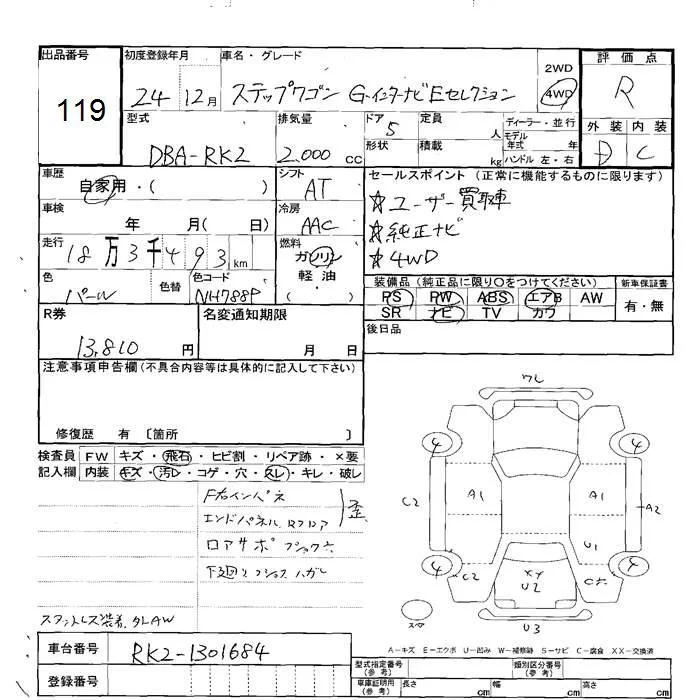 出品番号
119
初度登録年月
24 12月
車名・グレード
ステップワゴン G・インターナビEセレクション
2WD
4WD
評価点
R
外装 内装
D C
型式
DBA-RK2
排気量
2.000 cc
ドア 5
形状
定員 人
積載 kg
ディーラー・並行
モデル年式
ハンドル 左・右
車歴
自家用・( )
シフト
AT
セールスポイント (正常に機能するものに限ります)
☆ユーザー買取車
☆純正ナビ
☆4WD
車検
年 月( 日)
冷房
AAC
走行
18万3千493km
燃料
ガソリン
軽・油
( )
色
パール
色替
色コード
NH788P
装備品 (純正品に限り〇をつけてください)
PS PW ABS エアB AW
SR ナビ TV カワ
新車保証書
有・無
R券
13,810 円
名変通知期限
月 日
後日品
注意事項申告欄(不具合内容等は具体的に記入して下さい)
修復歴 有 〔箇所 〕
検査員記入欄
FW キズ・飛石・ヒビ割・リペア跡・×要
内装 キズ・汚レ・コゲ・穴・スレ・キレ・破レ
F右インパネ
エンドパネル、Rフロア
歪
ロアサポ
下廻り
ハガレ
スタットレス装着 外AW
ワレ
4 4
C2 A1 A1 A2
U1
4 4
C2 XY U2
スペア
U3
A－キズ E－エクボ U－凹み W－補修跡 S－サビ C－腐食 XX－交換済
車台番号
RK2-1301684
登録番号
型式指定番号(参考)
類別区分番号(参考)
車庫証明用(参考)
長さ cm 幅 cm 高さ cm